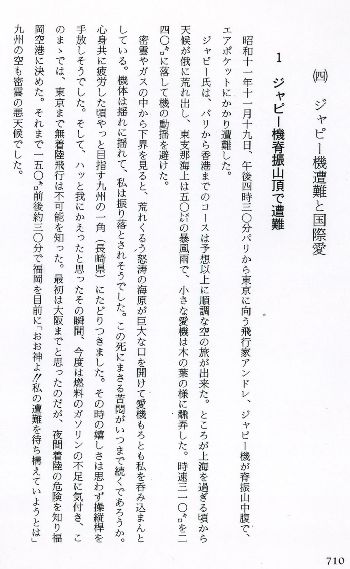 ㈣ ジャピー機遭難と国際愛
1 ジャピー機脊振山頂で遭難
昭和十一年十一月十九日、午後四時三〇分パリから東京に向う飛行家アンドレ、ジャピー機が脊振山中腹で、
エアポケットにかかり遭難した。
ジャピー氏は、パリから香港までのコースは予想以上に順調な空の旅が出来た。ところが上海を過ぎる頃から
天候が俄に荒れ出し、東支那海上は五〇㍍の暴風雨で、小さな愛機は木の葉の様に翻弄した。時速三一〇㌔を二
四〇㌔に落して機の動揺を避けた。
密雲やガスの中から下界を見ると、荒れくるう怒涛の海原が巨大な口を開けて愛機もろとも私を呑み込まんと
している。機体は揺れに揺れて、私は振り落とされそうでした。この死にまさる苦悶がいつまで続くであろうか。
心身共に疲労した頃やっと目指す九州の一角（長崎県）にたどりつきました。その時の嬉しさは思わず操縦桿を
手放しそうでした。そして、ハッと我にかえったと思ったその瞬間、今度は燃料のガソリンの不足に気付き、こ
のまゝでは、東京まで無着陸飛行は不可能を知った。最初は大阪までと思ったのだが、夜間着陸の危険を知り福
岡空港に決めた。それまで一五〇㌔前後約三〇分で福岡を目前に「おお神よ!!私の遭難を待ち構えていようとは」
九州の空も密雲の悪天候でした。
710